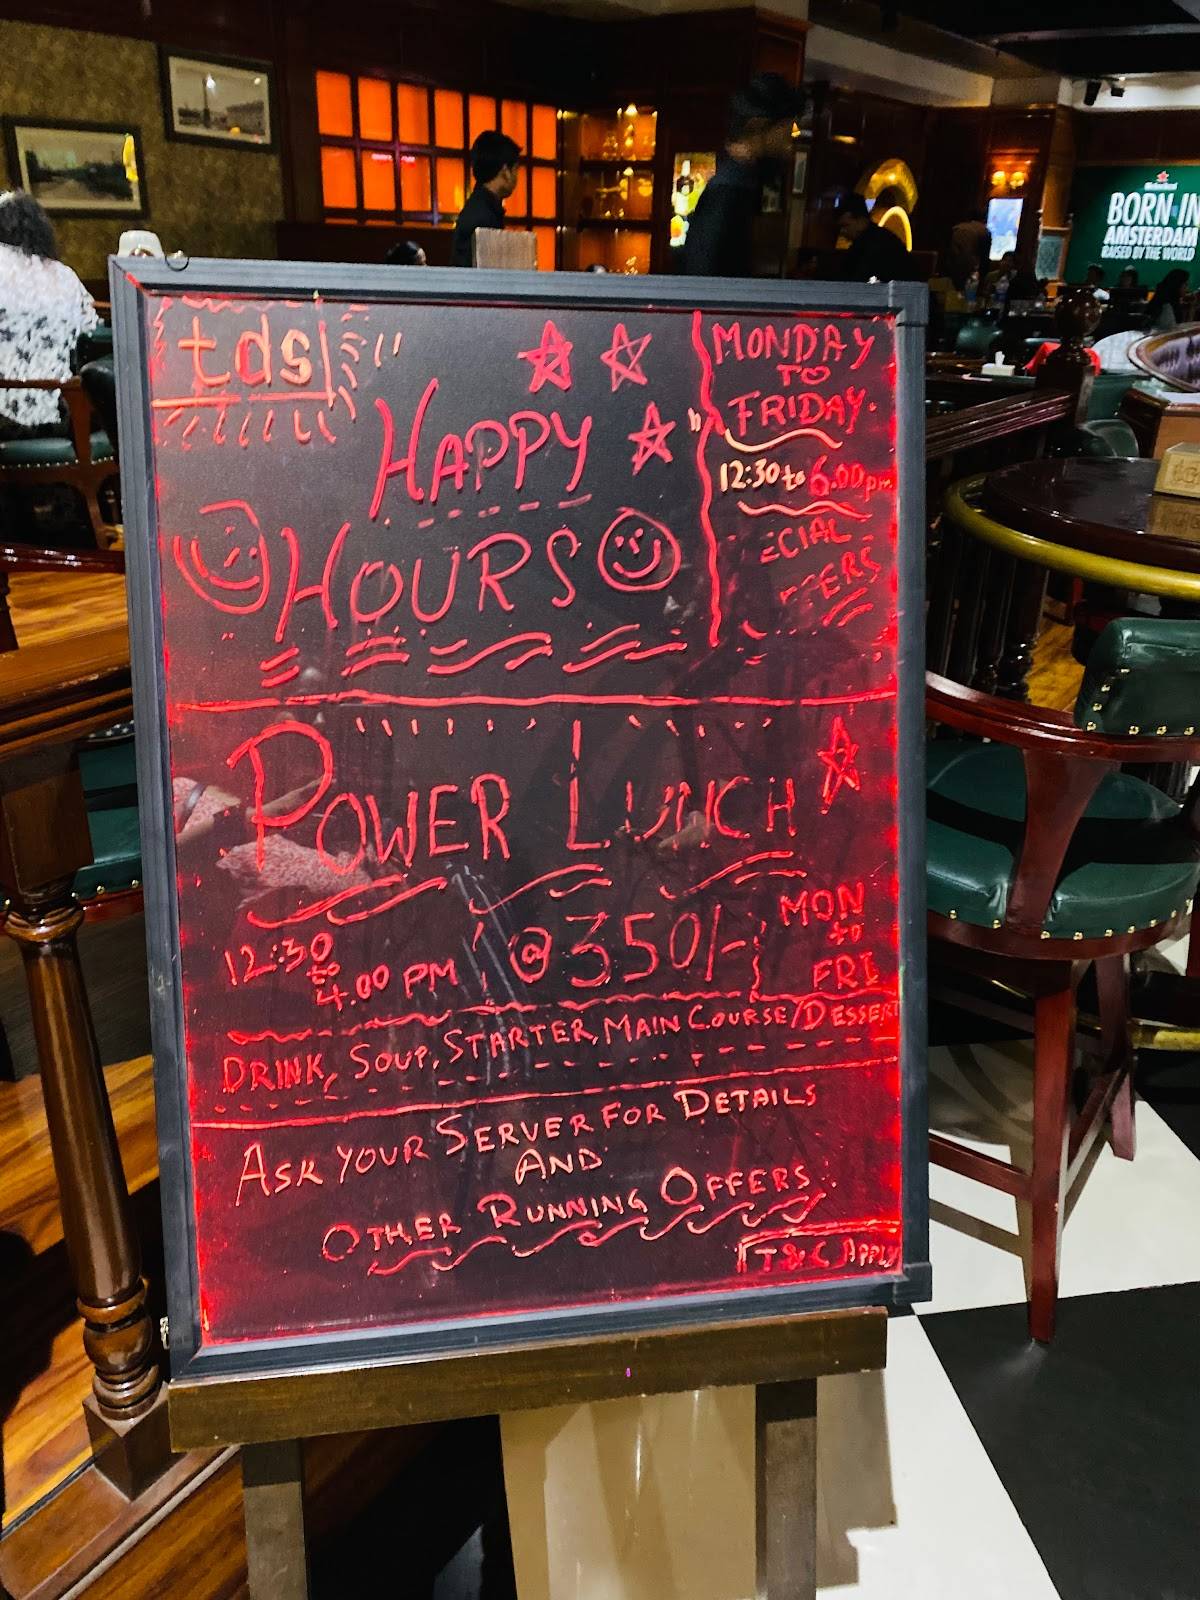 tds
HAPPY
HOURS
MONDAY
TO
FRIDAY.
12:30 to 6.00 pm
ECIAL
FFERS
POWER LUNCH
12:30
to
4.00 PM
@350/-
MON
to
FRI
DRINK, SOUP, STARTER, MAIN COURSE/DESSERT
ASK YOUR SERVER FOR DETAILS
AND
OTHER RUNNING OFFERS
T & C APPLY
Heineken
BORN IN
AMSTERDAM
RAISED BY THE WORLD